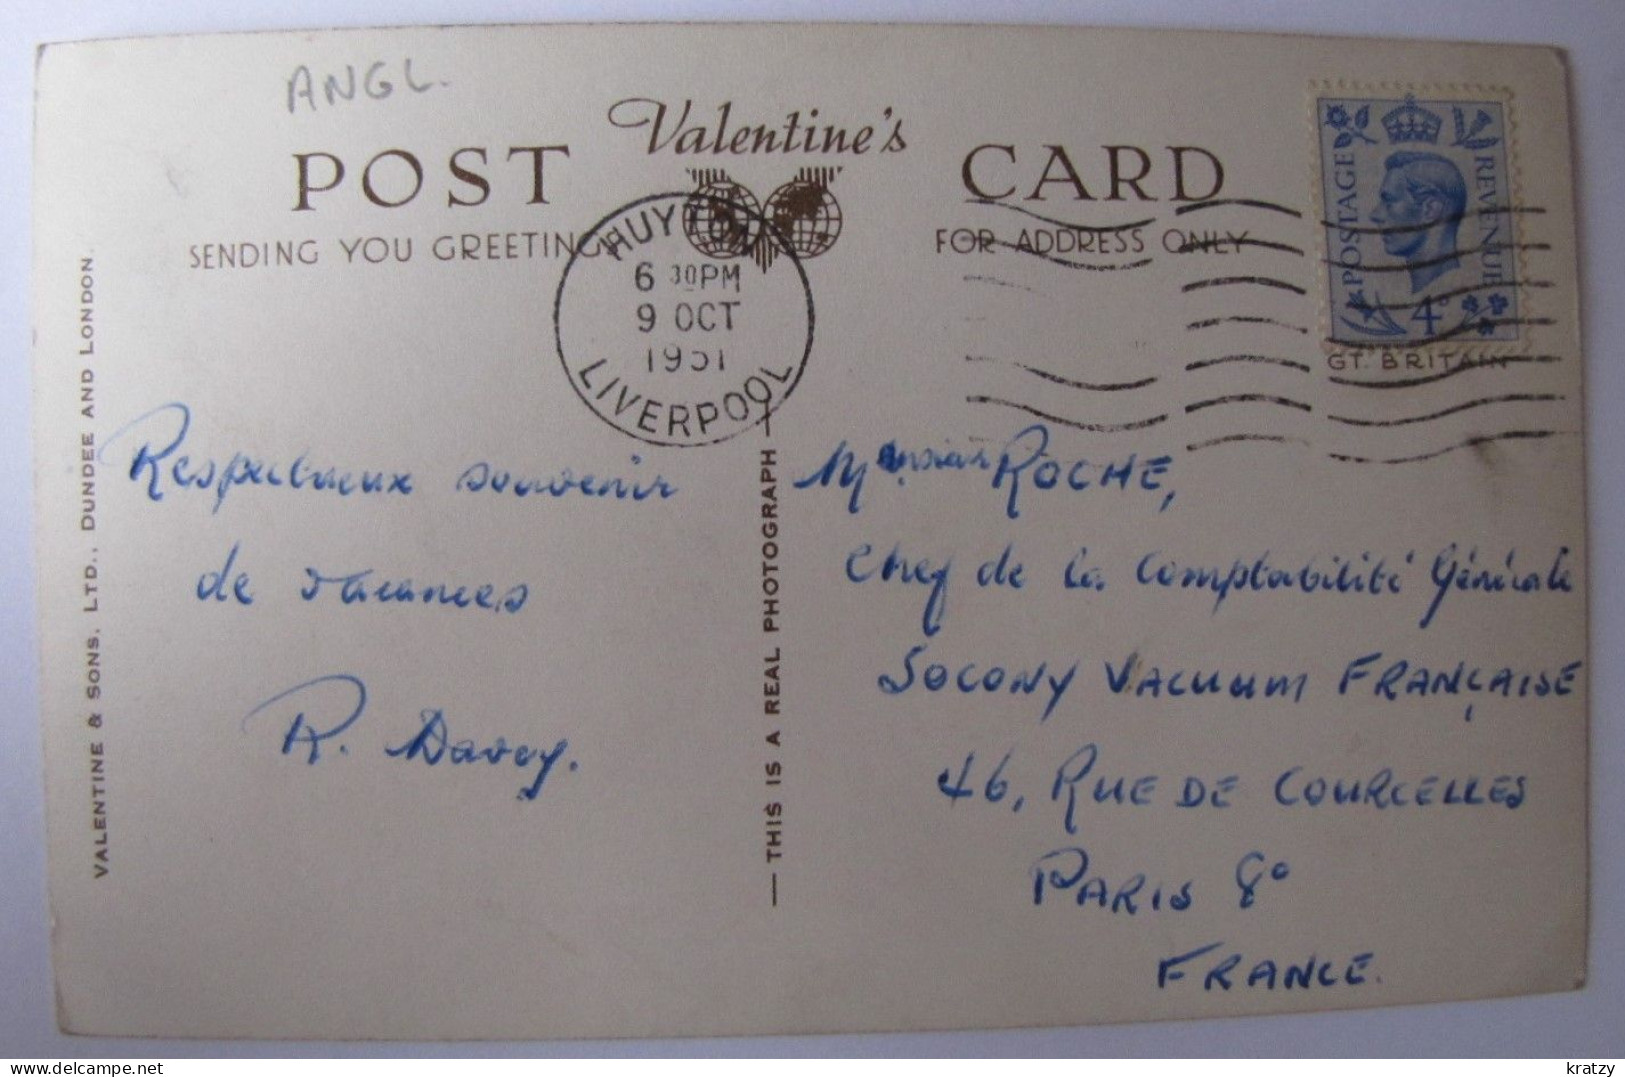 ANGL.
Valentine's
POST CARD
SENDING YOU GREETING
FOR ADDRESS ONLY
HUYTON
6 30PM
9 OCT
1951
LIVERPOOL
POSTAGE
REVENUE
4D
GT. BRITAIN
VALENTINE & SONS, LTD., DUNDEE AND LONDON.
— THIS IS A REAL PHOTOGRAPH —
Respectueux souvenir
de vacances
R. Davey.
Monsieur ROCHE,
Chef de la Comptabilité Générale
SOCONY VACUUM FRANÇAISE
46, RUE DE COURCELLES
PARIS 8°
FRANCE.
delcampe.net
kratzy